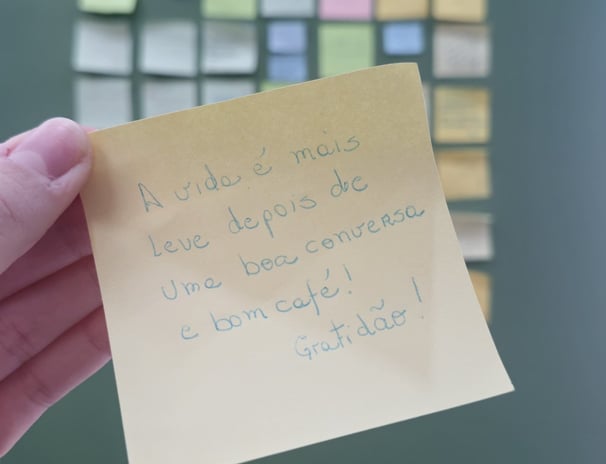 A vida é mais
leve depois de
uma boa conversa
e bom café!
Gratidão!